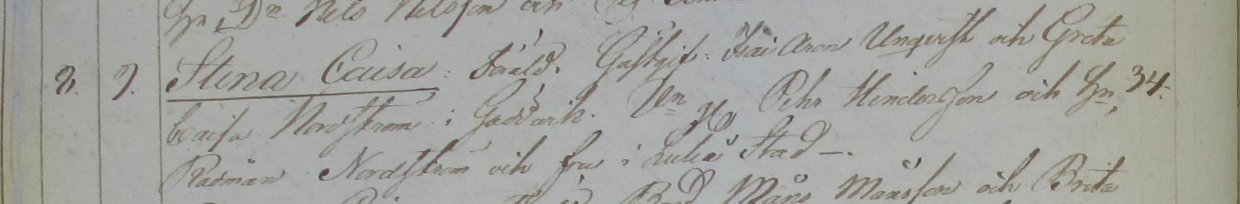 Nels Nelsson och
8. 9. Stina Caisa. Föräld. Gästgif. Isac Aron Unqvist och Greta
Caisa Nordström i Gaddvik. Pehr Hindersson och Hn, 34.
Rådman Nordström och fru i Luleå Stad –.
Måns Månsson och Brita